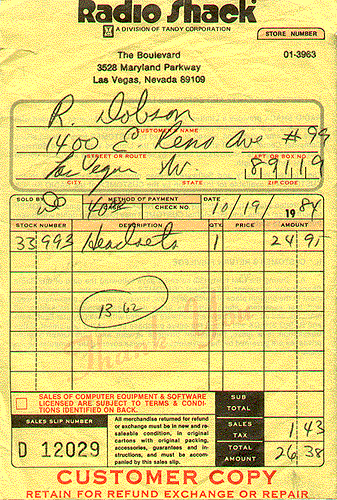 Radio Shack
A DIVISION OF TANDY CORPORATION
STORE NUMBER
The Boulevard 01-3963
3528 Maryland Parkway
Las Vegas, Nevada 89109
R. Dobson
CUSTOMER'S NAME
1400 E Reno Ave #99
STREET OR ROUTE APT OR BOX NO.
Las Vegas NV 89119
CITY STATE ZIP CODE
SOLD BY METHOD OF PAYMENT CHECK NO. DATE
40.00 10/19/ 1984
STOCK NUMBER DESCRIPTION QTY. PRICE AMOUNT
33 993 Headsets 1 24 95
13 62
Thank You
SALES OF COMPUTER EQUIPMENT & SOFTWARE
LICENSED ARE SUBJECT TO TERMS & CONDI-
TIONS IDENTIFIED ON BACK.
SUB TOTAL
SALES SLIP NUMBER
D 12029
All merchandise returned for refund
or exchange must be in new and re-
saleable condition, in original
cartons with original packing,
accessories, guarantees and in-
structions, and must be accom-
panied by this sales slip.
SALES TAX 1 43
TOTAL AMOUNT 26 38
CUSTOMER COPY
RETAIN FOR REFUND EXCHANGE OR REPAIR